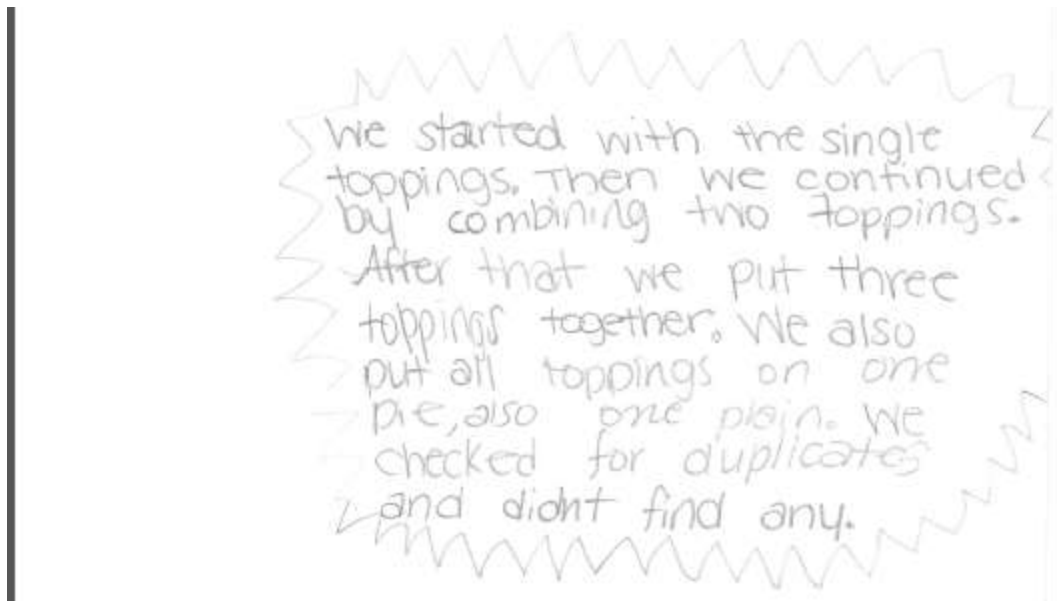 We started with the single
toppings. Then we continued
by combining two toppings.
After that we put three
toppings together. We also
put all toppings on one
pie, also one plain. We
checked for duplicates
and didnt find any.